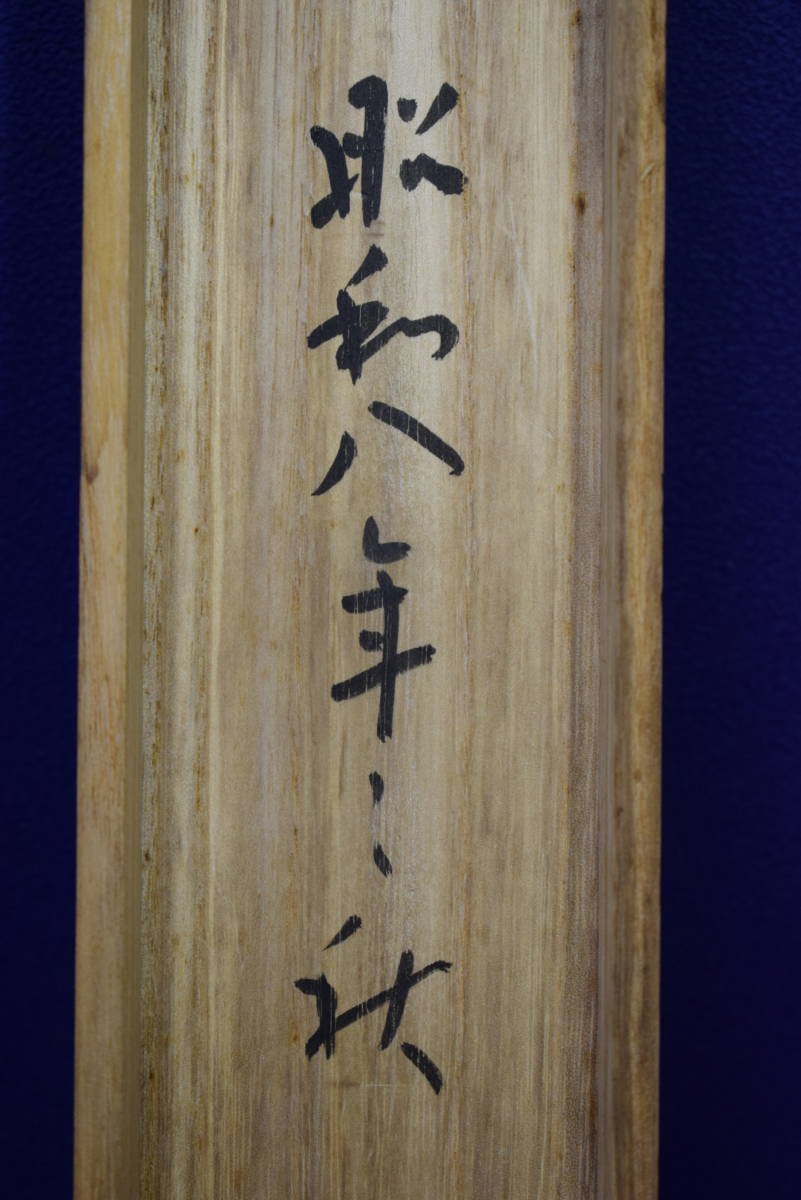 昭和八年之秋